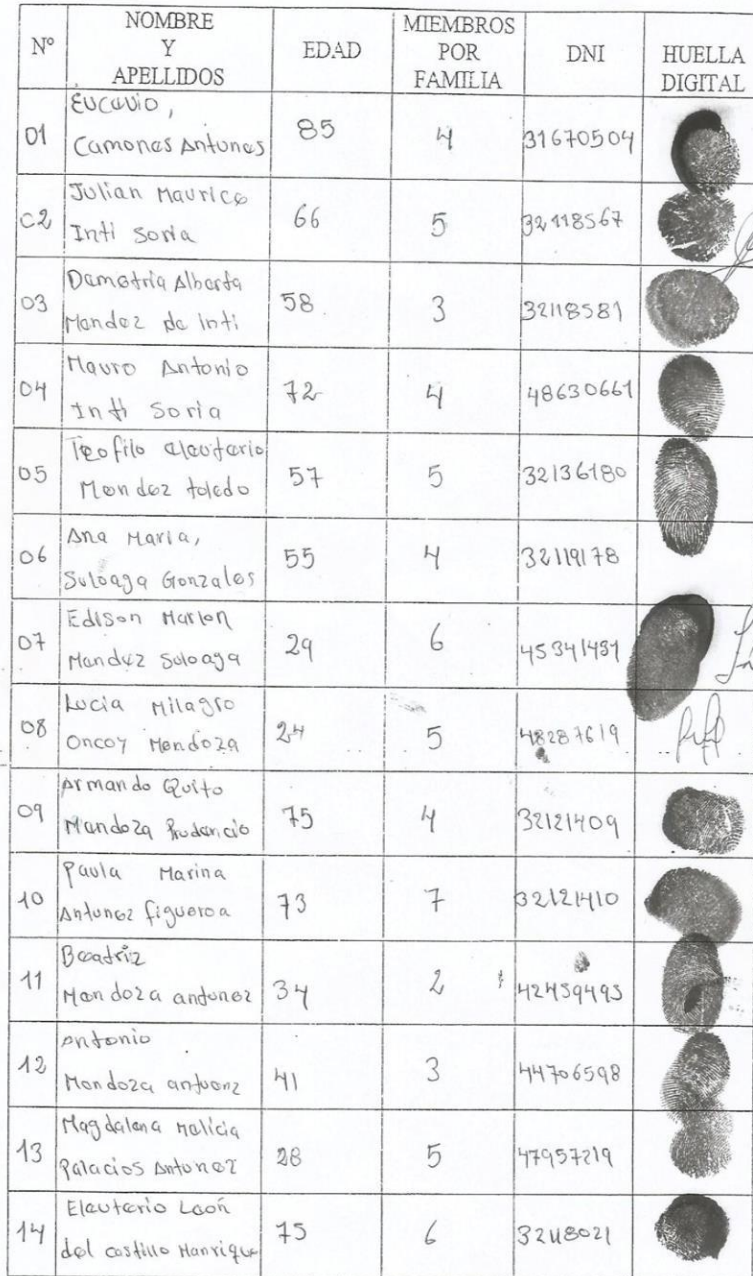 Nº NOMBRE Y APELLIDOS EDAD MIEMBROS POR FAMILIA DNI HUELLA DIGITAL
01 Eucavio, Camones Antunes 85 4 31670504
02 Julian Maurice Inti Soria 66 5 32118567
03 Demetria Alberta Mendez de Inti 58 3 32118581
04 Mauro Antonio Inti Soria 72 4 48630661
05 Teofilo eleuterio Mendez toledo 57 5 32136180
06 Ana Maria, Suloaga Gonzales 55 4 32119178
07 Edison Marlon Mendez Suloaga 29 6
08 Lucia Milagro Oncoy Mendoza 24 5 48287619
09 Armando Quito Mendoza Prudencio 75 4 32121409
10 Paula Marina Antunez figueroa 73 7 32121410
11 Beatriz Mendoza antunez 34 2 42459495
12 Antonio Mendoza 41 3 44706598
13 Magdalena Palacios Antunez 28 5 47957219
14 Eleuterio León del castillo Manrique 75 6 32118021